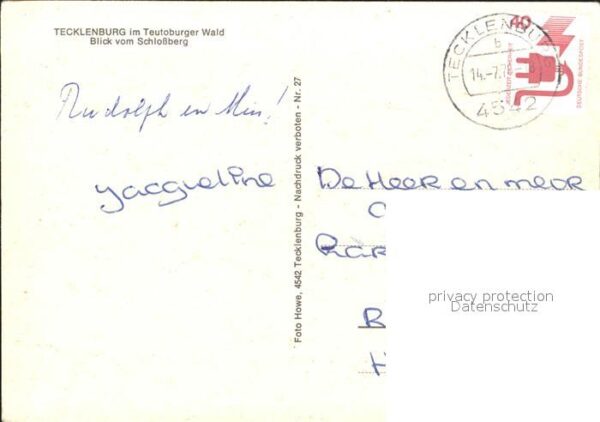 TECKLENBURG im Teutoburger Wald
Blick vom Schloßberg
Rudolph en Mien!
Jacqueline
Foto Howe, 4542 Tecklenburg - Nachdruck verboten - Nr. 27
TECKLENBURG
b
14.-7.7
4542
40
DEUTSCHE BUNDESPOST
De Heer en mevr
privacy protection
Datenschutz